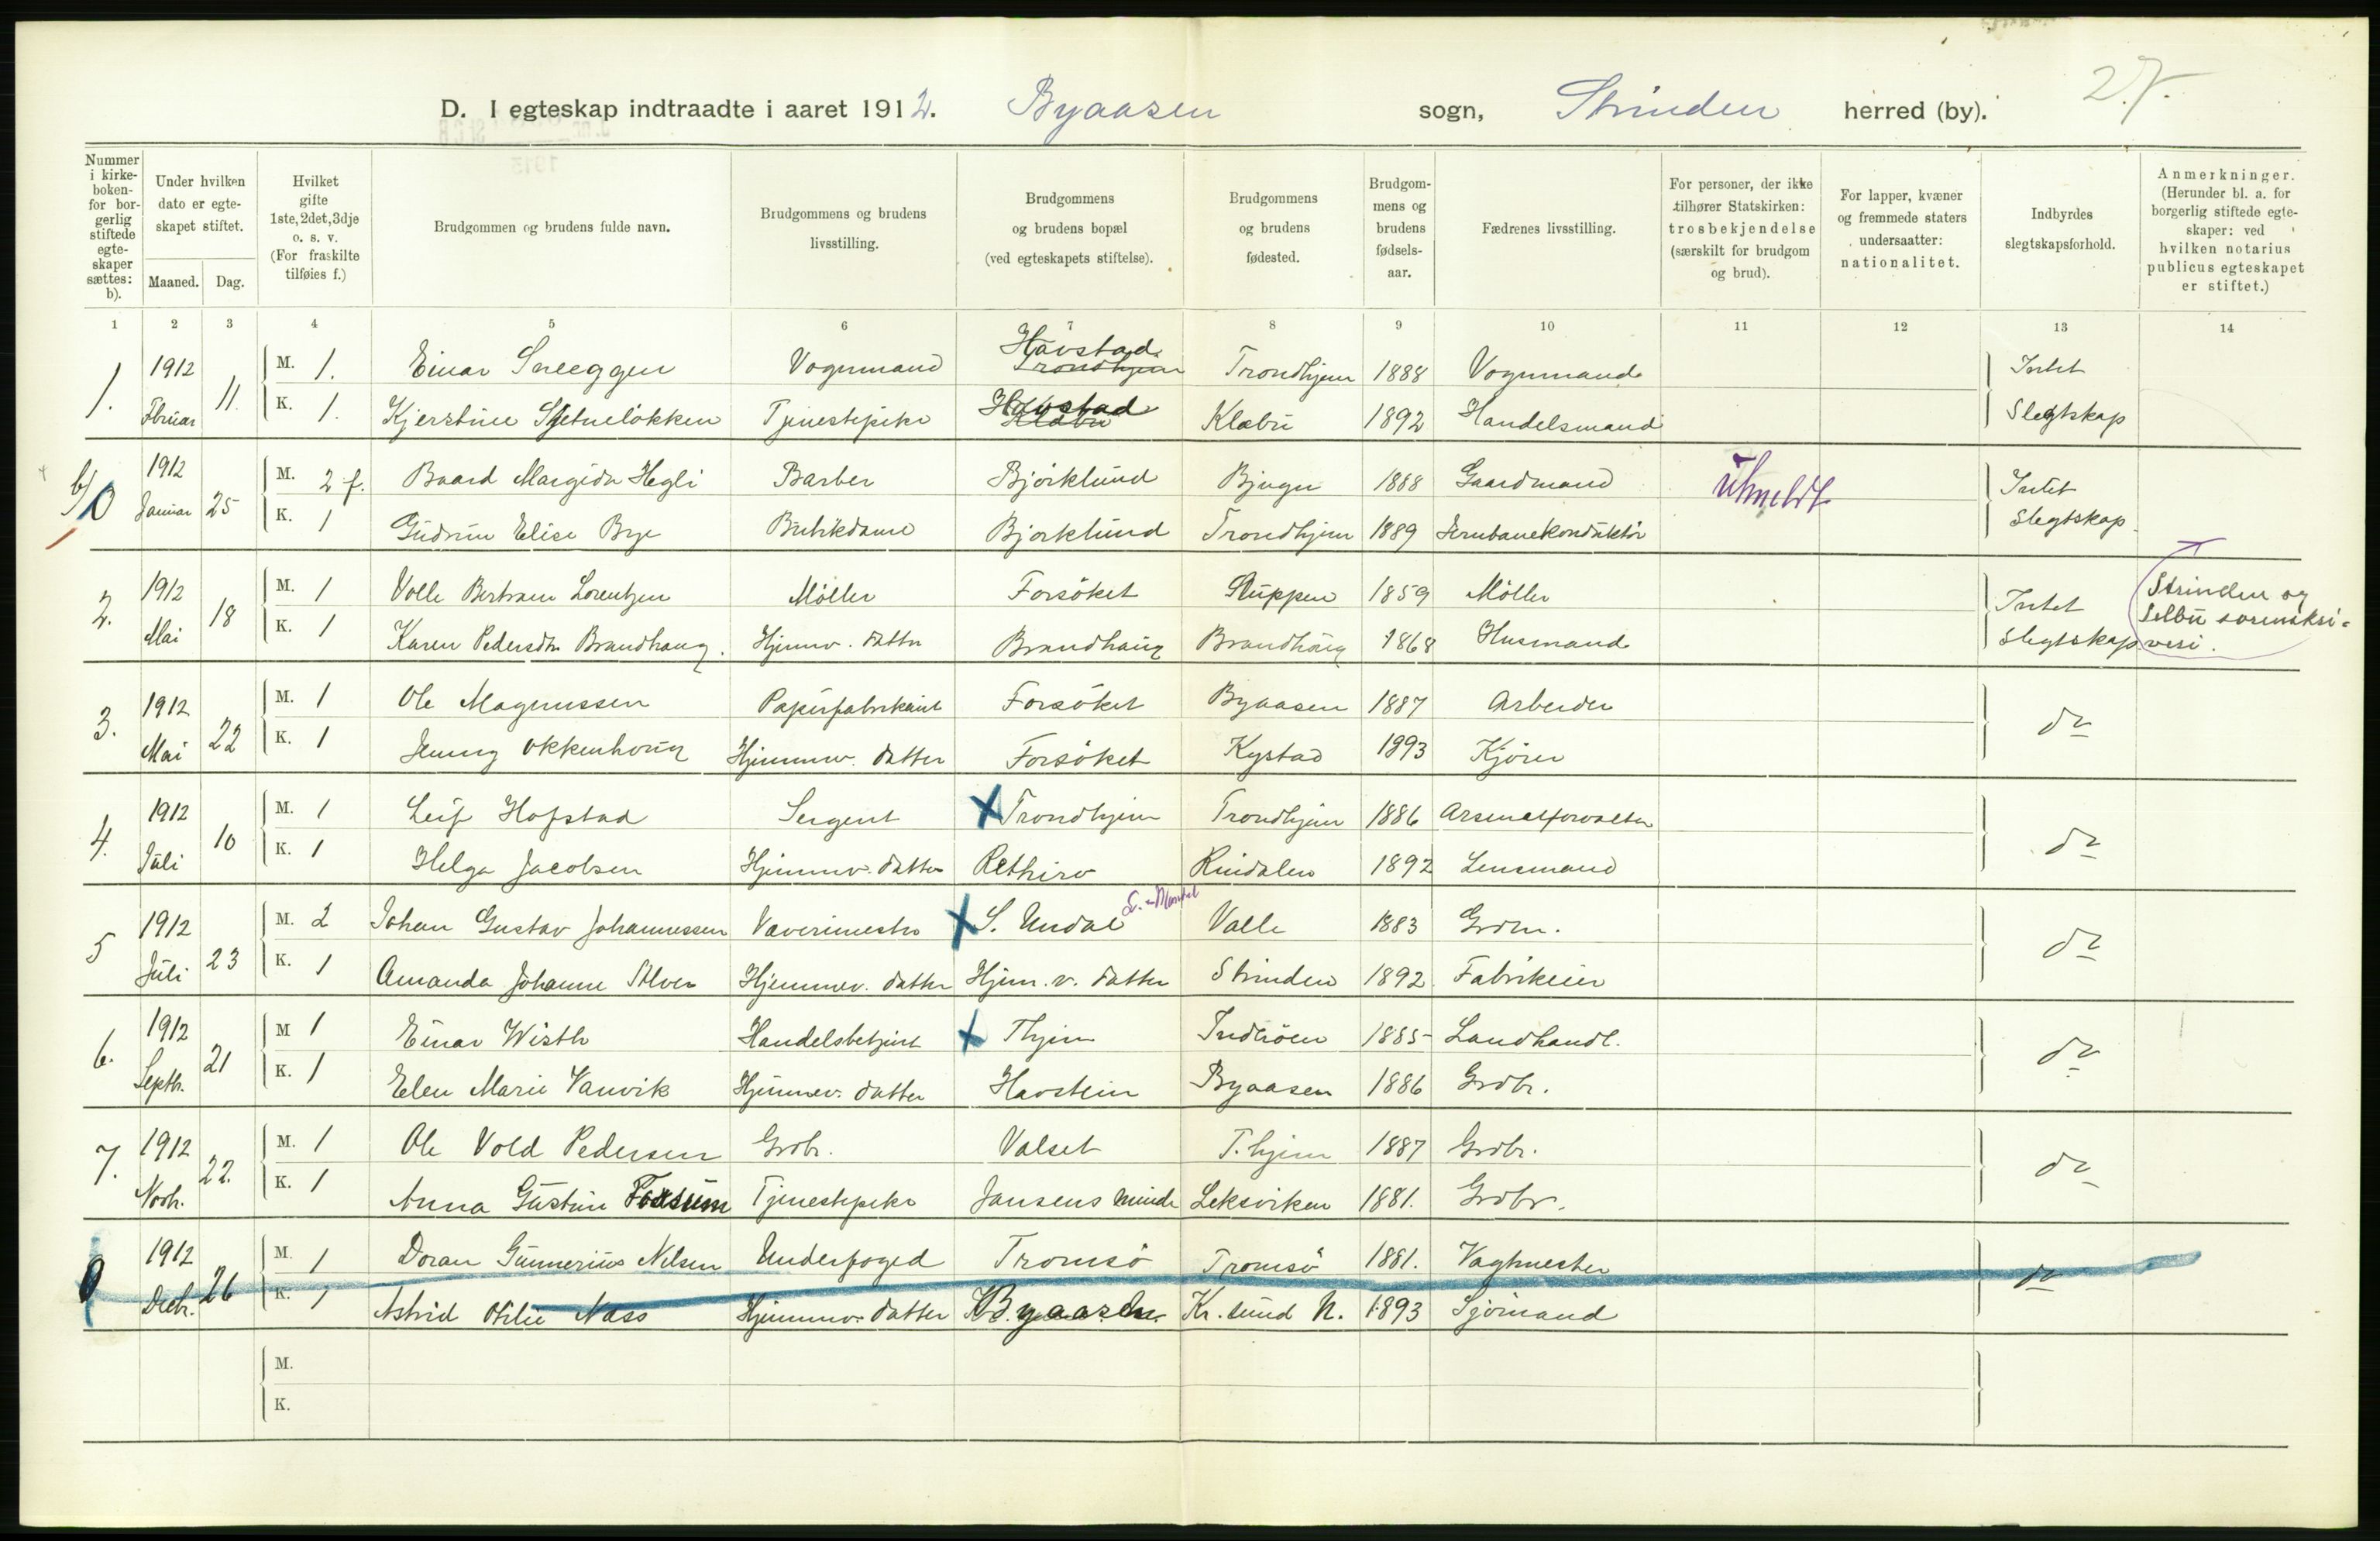 27.
D. I egteskap indtraadte i aaret 1912. Byaasen sogn, Strinden herred (by).
Nummer i kirkeboken- for borgerlig stiftede egteskaper sættes: b).
Under hvilken dato er egteskapet stiftet.
Maaned. Dag.
Hvilket gifte 1ste, 2det, 3dje o. s. v. (For fraskilte tilføies f.)
Brudgommen og brudens fulde navn.
Brudgommens og brudens livsstilling.
Brudgommens og brudens bopæl (ved egteskapets stiftelse).
Brudgommens og brudens fødested.
Brudgommens og brudens fødselsaar.
Fædrenes livsstilling.
For personer, der ikke tilhører Statskirken: trosbekjendelse (særskilt for brudgom og brud).
For lapper, kvæner og fremmede staters undersaatter: nationalitet.
Indbyrdes slegtskapsforhold.
Anmerkninger. (Herunder bl. a. for borgerlig stiftede egteskaper: ved hvilken notarius publicus egteskapet er stiftet.)
1 2 3 4 5 6 7 8 9 10 11 12 13 14
1. 1912 Februar 11. M. 1. Einar Sneeggen Vognmand Havstad Trondhjem Trondhjem 1888 Vognmand Intet
K. 1. Kjerstine Sjetneløkken Tjenestepike Havstad Klæbu Klæbu 1892 Handelsmand Slegtskap
b/0 1912 Januar 25 M. 2 f. Baard Margido Hegli Barber Bjørklund Bjugn 1888 Gaardmand utmeldt Intet
K. 1 Gudrun Elise Bye Butikdame Bjørklund Trondhjem 1889 Jernbanekonduktør Slegtskap
2. 1912 Mai 18 M. 1 Volle Bertram Lorentzen Møller Forsøket Sluppen 1859 Møller Intet Strinden og
K. 1 Karen Pedersdtr Brandhaug. Hjemmev. datter Brandhaug Brandhaug 1868 Husmand Slegtskap Selbu sorenskriveri.
3. 1912 Mai 22 M. 1 Ole Magnussen Papirfabrikant Forsøket Byaasen 1887 Arbeider do
K. 1 Jenny Okkenhoug Hjemmev. datter Forsøket Kystad 1893 Kjører
4. 1912 Juli 10 M. 1 Leif Hofstad Sergent Trondhjem Trondhjem 1886 Arsenalforvalter do
K. 1 Helga Jacobsen Hjemmev. datter Rethiro Rindalen 1892 Lensmand
5 1912 Juli 23 M. 2 Johan Gustav Johannessen Væverimester S. Undal Valle 1883 Grdm. do
K. 1 Amanda Johanne Alver Hjemmev. datter Hjem. v. datter Strinden 1892. Fabrikeier
6. 1912 Septb. 21 M 1 Einar Wisth Handelsbetjent Thjem Inderøen 1885 Landhandl. do
K. 1 Elen Marie Vanvik Hjemmev. datter Havstein Byaasen 1886 Grdbr.
7. 1912 Novb. 22. M. 1 Ole Vold Pedersen Grdbr. Valset T.hjem 1887 Grdbr. do
K. 1 Anna Gustine Fossum Tjenestepike Jansens minde Leksviken 1881. Grdbr.
1912 Decbr. 26 M. 1 Doran Gunnerius Nilsen Underfoged Tromsø Tromsø 1881. Vagtmester do
K. 1 Astrid Otilie Næss Hjemmev. datter Byaasen Kr.sund N. 1893 Sjømand
M.
K.